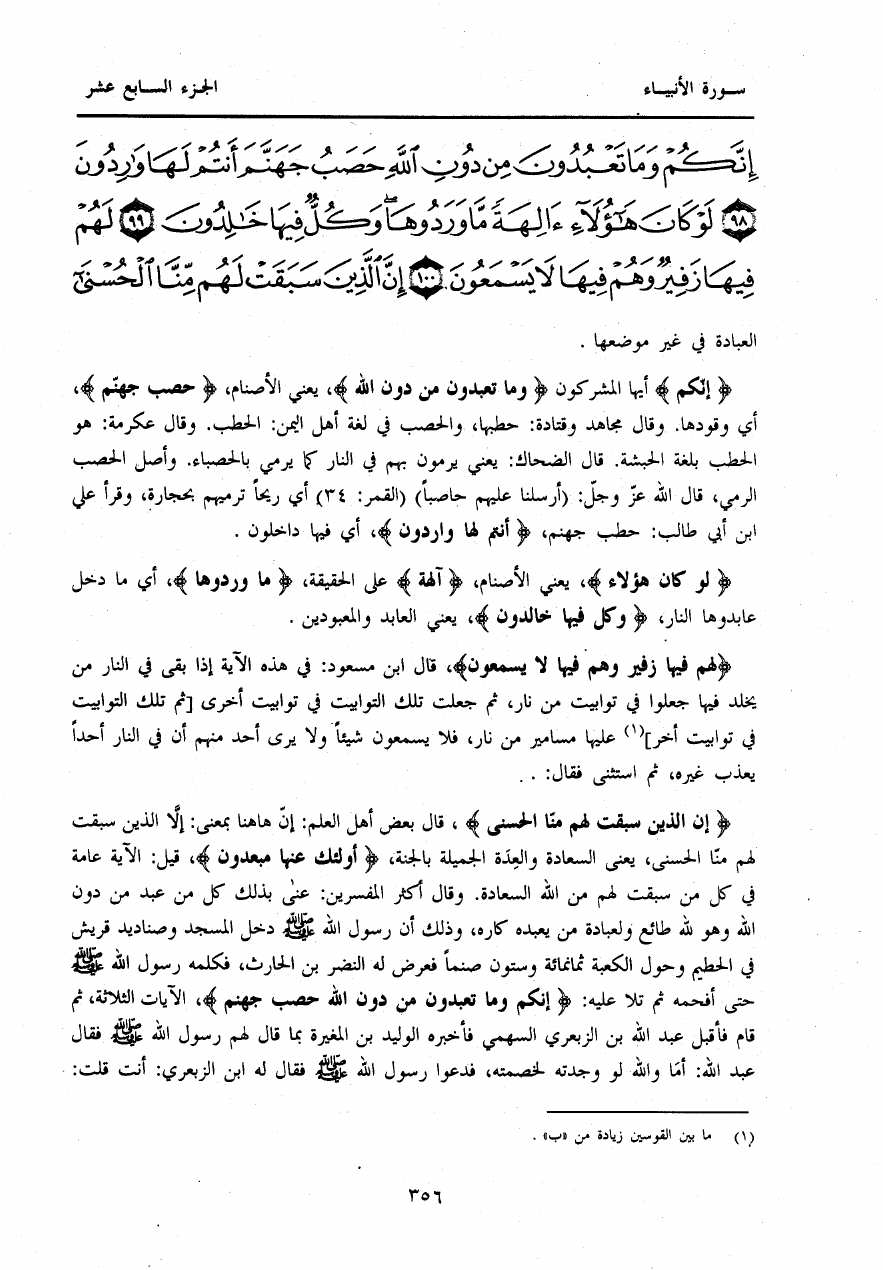 سورة الأنبياء
الجزء السابع عشر
إِنَّكُمْ وَمَا تَعْبُدُونَ مِن دُونِ ٱللَّهِ حَصَبُ جَهَنَّمَ أَنتُمْ لَهَا وَٰرِدُونَ
﴿٩٨﴾ لَوْ كَانَ هَٰٓؤُلَآءِ ءَالِهَةً مَّا وَرَدُوهَا ۖ وَكُلٌّ فِيهَا خَٰلِدُونَ ﴿٩٩﴾ لَهُمْ
فِيهَا زَفِيرٌ وَهُمْ فِيهَا لَا يَسْمَعُونَ ﴿١٠٠﴾ إِنَّ ٱلَّذِينَ سَبَقَتْ لَهُم مِّنَّا ٱلْحُسْنَىٰٓ
العبادة في غير موضعها .
﴿ إنّكم ﴾ أيها المشركون ﴿ وما تعبدون من دون الله ﴾، يعني الأصنام، ﴿ حصب جهنّم ﴾،
أي وقودها. وقال مجاهد وقتادة: حطبها، والحصب في لغة أهل اليمن: الحطب. وقال عكرمة: هو
الحطب بلغة الحبشة. قال الضحاك: يعني يرمون بهم في النار كما يرمي بالحصباء. وأصل الحصب
الرمي، قال الله عزّ وجلّ: (أرسلنا عليهم حاصباً) (القمر: ٣٤) أي ريحاً ترميهم بحجارة، وقرأ علي
ابن أبي طالب: حطب جهنم، ﴿ أنتم لها واردون ﴾، أي فيها داخلون .
﴿ لو كان هؤلاء ﴾، يعني الأصنام، ﴿ آلهة ﴾ على الحقيقة، ﴿ ما وردوها ﴾، أي ما دخل
عابدوها النار، ﴿ وكل فيها خالدون ﴾، يعني العابد والمعبودين .
﴿لهم فيها زفير وهم فيها لا يسمعون﴾، قال ابن مسعود: في هذه الآية إذا بقى في النار من
يخلد فيها جعلوا في توابيت من نار، ثم جعلت تلك التوابيت في توابيت أخرى [ثم تلك التوابيت
في توابيت أخر](١) عليها مسامير من نار، فلا يسمعون شيئاً ولا يرى أحد منهم أن في النار أحداً
يعذب غيره، ثم استثنى فقال: . .
﴿ إن الذين سبقت لهم منّا الحسنى ﴾ ، قال بعض أهل العلم: إنّ هاهنا بمعنى: إلَّا الذين سبقت
لهم منّا الحسنى، يعنى السعادة والعِدَة الجميلة بالجنة، ﴿ أولئك عنها مبعدون ﴾، قيل: الآية عامة
في كل من سبقت لهم من الله السعادة. وقال أكثر المفسرين: عنىٰ بذلك كل من عبد من دون
الله وهو لله طائع ولعبادة من يعبده كاره، وذلك أن رسول الله ﷺ دخل المسجد وصناديد قريش
في الحطيم وحول الكعبة ثمانمائة وستون صنماً فعرض له النضر بن الحارث، فكلمه رسول الله ﷺ
حتى أفحمه ثم تلا عليه: ﴿ إنكم وما تعبدون من دون الله حصب جهنم ﴾، الآيات الثلاثة، ثم
قام فأقبل عبد الله بن الزبعري السهمي فأخبره الوليد بن المغيرة بما قال لهم رسول الله ﷺ فقال
عبد الله: أمّا والله لو وجدته لخصمته، فدعوا رسول الله ﷺ فقال له ابن الزبعري: أنت قلت:
(١) ما بين القوسين زيادة من «ب» .
٣٥٦